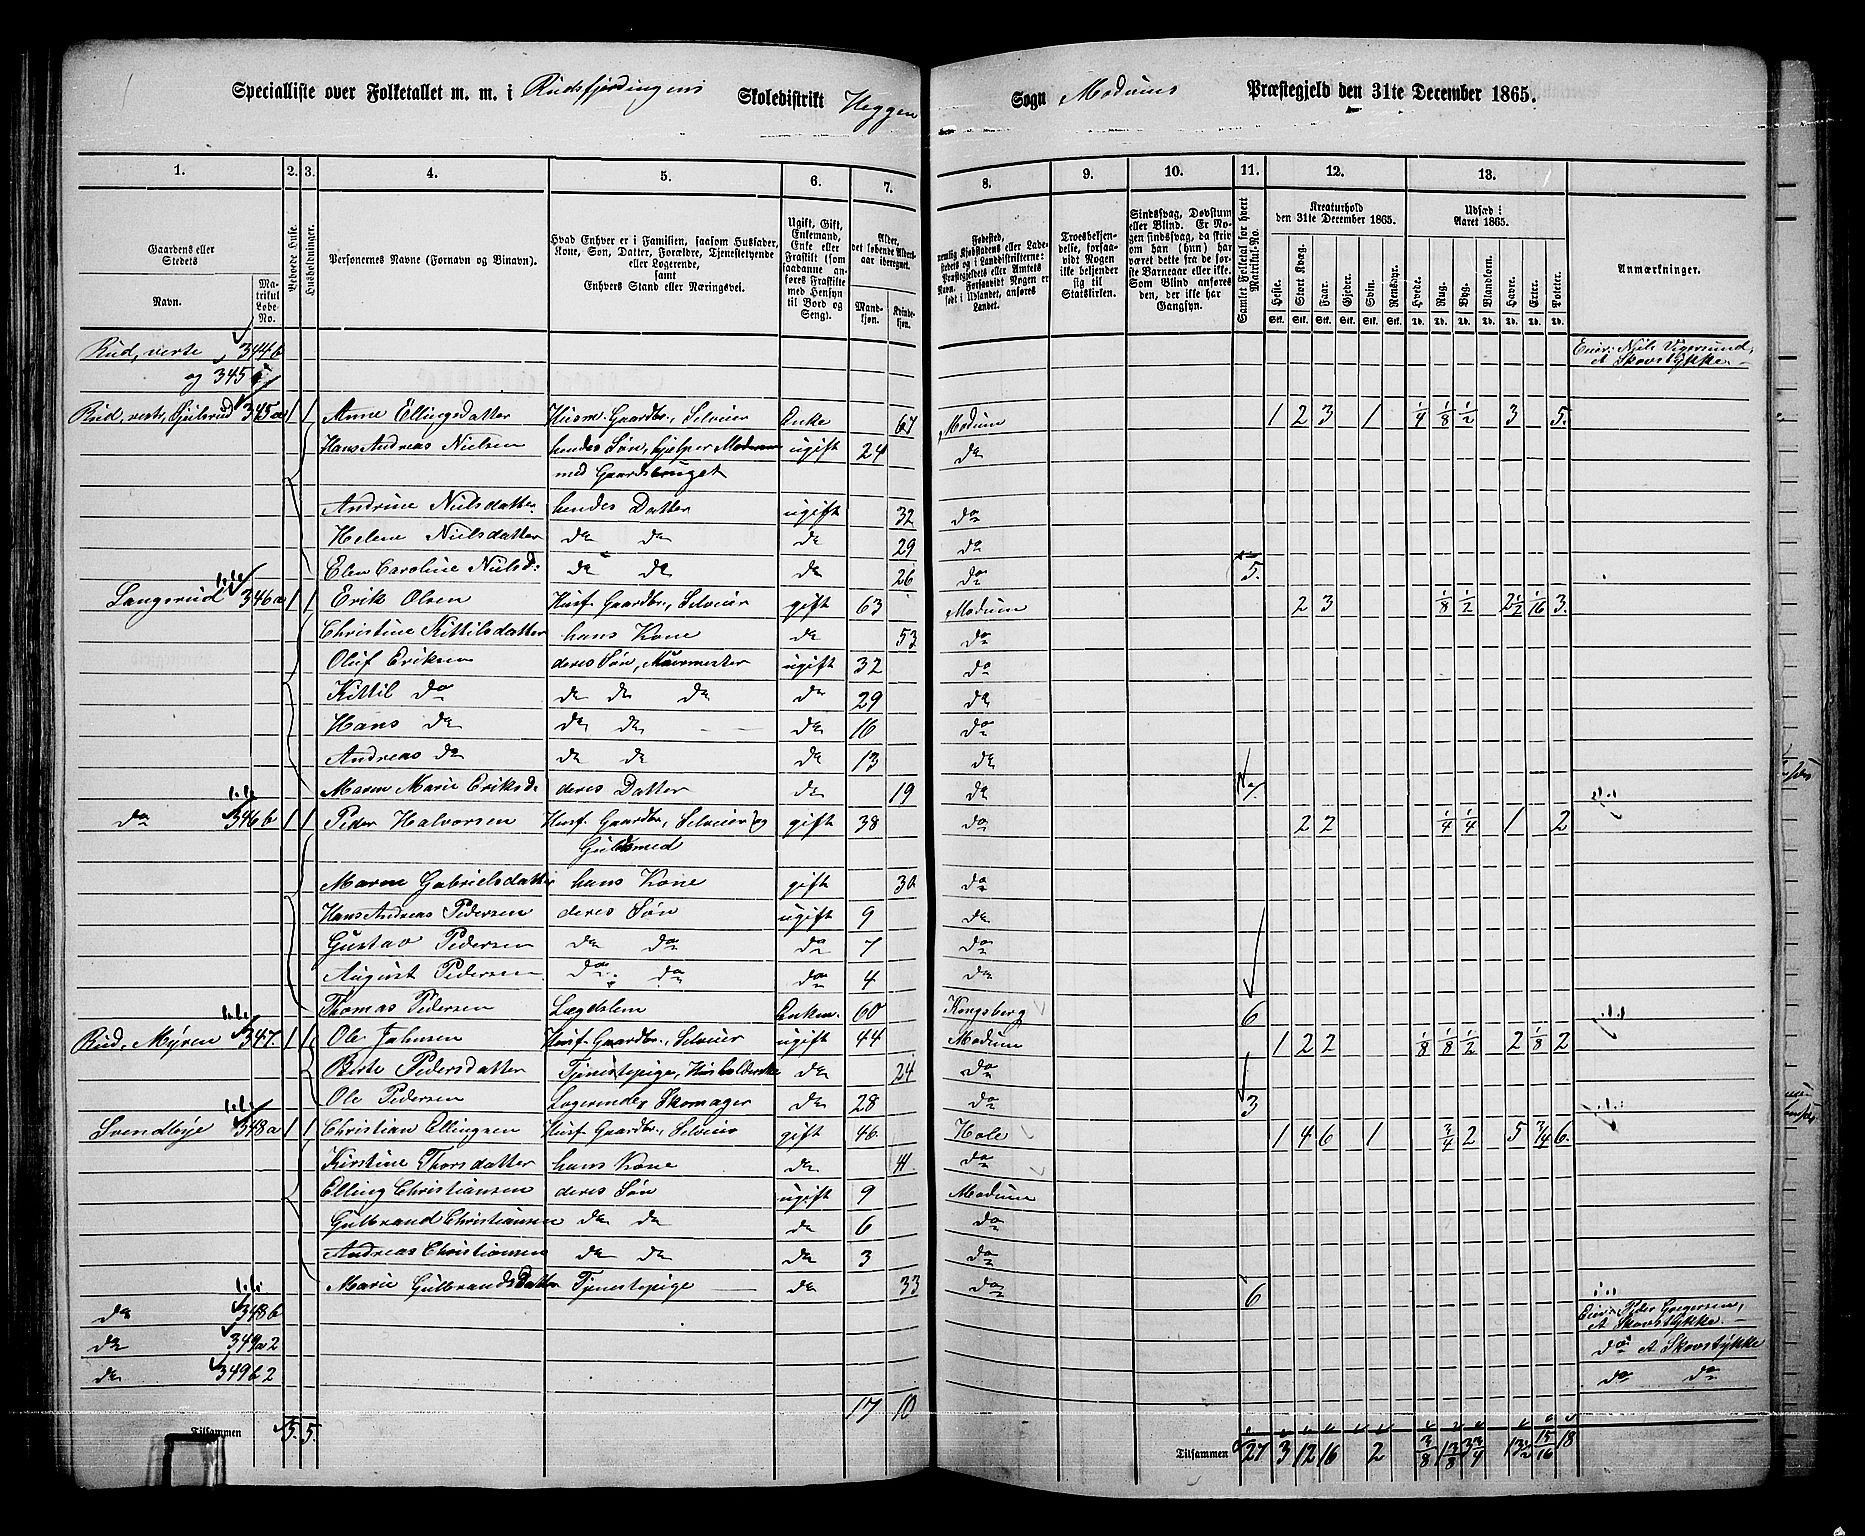 Specialliste over Folketallet m. m. i Rudsfjordingens Skoledistrikt Heggen Sogn Modums Præstegjeld den 31te December 1865.
1. 2. 3. 4. 5. 6. 7. 8. 9. 10. 11. 12. 13.
Gaardens eller Stedets
Navn.
Matrikul Løbe-No.
Beboede Huse.
Husholdninger.
Personernes Navne (Fornavn og Binavn).
Hvad Enhver er i Familien, saasom Husfader, Kone, Søn, Datter, Forældre, Tjenestetyende eller Logerende, samt Enhvers Stand eller Næringsvei.
Ugift, Gift, Enkemand, Enke eller Fraskilt (som saadanne anføres Fraskilte med Hensyn til Bord og Seng).
Alder, det løbende Aldersaar iberegnet.
Mandkjøn. Kvindekjøn.
Fødested, nemlig Kjøbstadens eller Ladestedets og i Landdistrikterne: Præstegjeldets eller Amtets Navn. Forsaavidt Nogen er født i Udlandet, anføres Landet.
Troesbekjendelse, forsaavidt Nogen ikke bekjender sig til Statskirken.
Sindssvag, Døvstum eller Blind. Er Nogen sindssvag, da skrives om han (hun) har været det fra de første Barneaar eller ikke. Som Blind anføres den, der ikke har Gangsyn.
Samlet Folketal for hvert Matrikul-No.
Kreaturhold den 31te December 1865.
Heste. Stort Kvæg. Faar. Gjeder. Svin. Rensdyr.
Udsæd i Aaret 1865.
Hvede. Rug. Byg. Blandkorn. Havre. Erter. Poteter.
Anmærkninger.
Rud, vestre 344 b Eier: Niels Vigersund,
og 345 A Skovstykke
Rud, vestr, Gjulsrud 345 a 1 1 Anne Ellingsdatter Husm. Gaardbr., Selveier Enke 67 Modum 1 2 3 1 1/4 1/8 1/2 3 5
Hans Andreas Nielsen hendes Søn, hjelper Moderen ugift 24 do
med Gaardsbruget
Andrine Nielsdatter hendes Datter ugift 32 do
Helene Nielsdatter do do do 29 do
Elen Caroline Nielsd. do do do 26 do 5.
Langerud 346 a 1 1 Erik Olsen Husf. Gaardbr., Selveier gift 63 Modum 2 3 1/8 1/2 2 1/2 1/16 3.
Christine Kittilsdatter hans Kone do 53 do
Oluf Eriksen deres Søn, Muurmester ugift 32 do
Kittil do do do do do 29 do
Hans do do do do 16 do
Andreas do do do do 13 do
Maren Marie Eriksd. deres Datter do 19 do 7.
do 346 b 1 1 Peder Halvorsen Husf. Gaardbr., Selveier og gift 38 do 2 2 1/4 1/4 1 2
Guldsmed
Maren Gabrielsdatter hans Kone gift 30 do
Hans Andreas Pedersen deres Søn ugift 9 do
Gustav Pedersen do do do 7 do
August Pedersen do do do 4 do
Thomas Pedersen Lægdslem Enkem. 60 Kongsberg 6
Rud, Myren 347 1 1 Ole Johnsen Husf. Gaardbr., Selveier ugift 44 Modum 1 2 2 1/8 1/8 1/2 2 1/8 2
Berte Pedersdatter Tjenestepige, Husholderske do 24 do
Ole Pedersen Logerende Skomager do 28 do 3
Svendbye 348 a 1 1 Christian Ellingsen Husf. Gaardbr., Selveier gift 46 Hole 1 4 6 1 3/4 2 5 3/4 6.
Kirstine Thorsdatter hans Kone do 41 do
Elling Christiansen deres Søn ugift 9 Modum
Gulbrand Christiansen do do do 6 do
Andreas Christiansen do do do 3 do
Marie Gulbrandsdatter Tjenestepige do 33 do 6
do 348 b Eier: Peder Gregersen,
A Skovstykke
do 349 a 2 do A Skovstykke
do 349 b 2 do do
17 10
Tilsammen 5. 5. Tilsammen 27 3 12 16 2 3/8 1 3/8 3 3/4 13 1/2 15/16 18